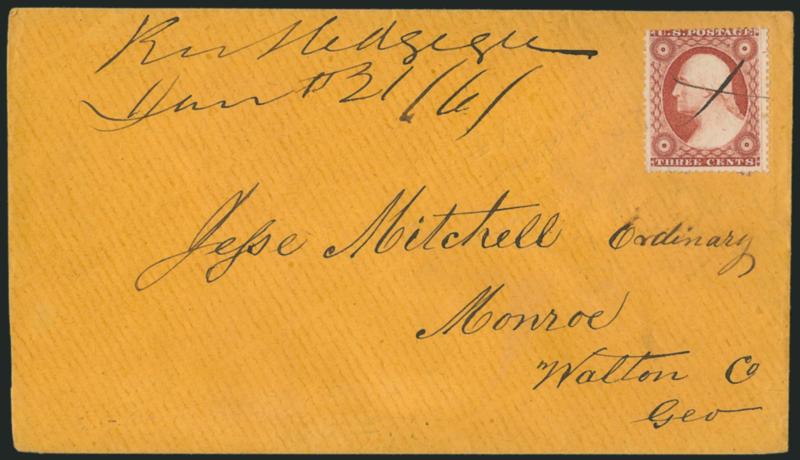 Rutledge Geo
Jan 31/61
U.S. POSTAGE
THREE CENTS
Jesse Mitchell Ordinary
Monroe
Walton Co
Geo